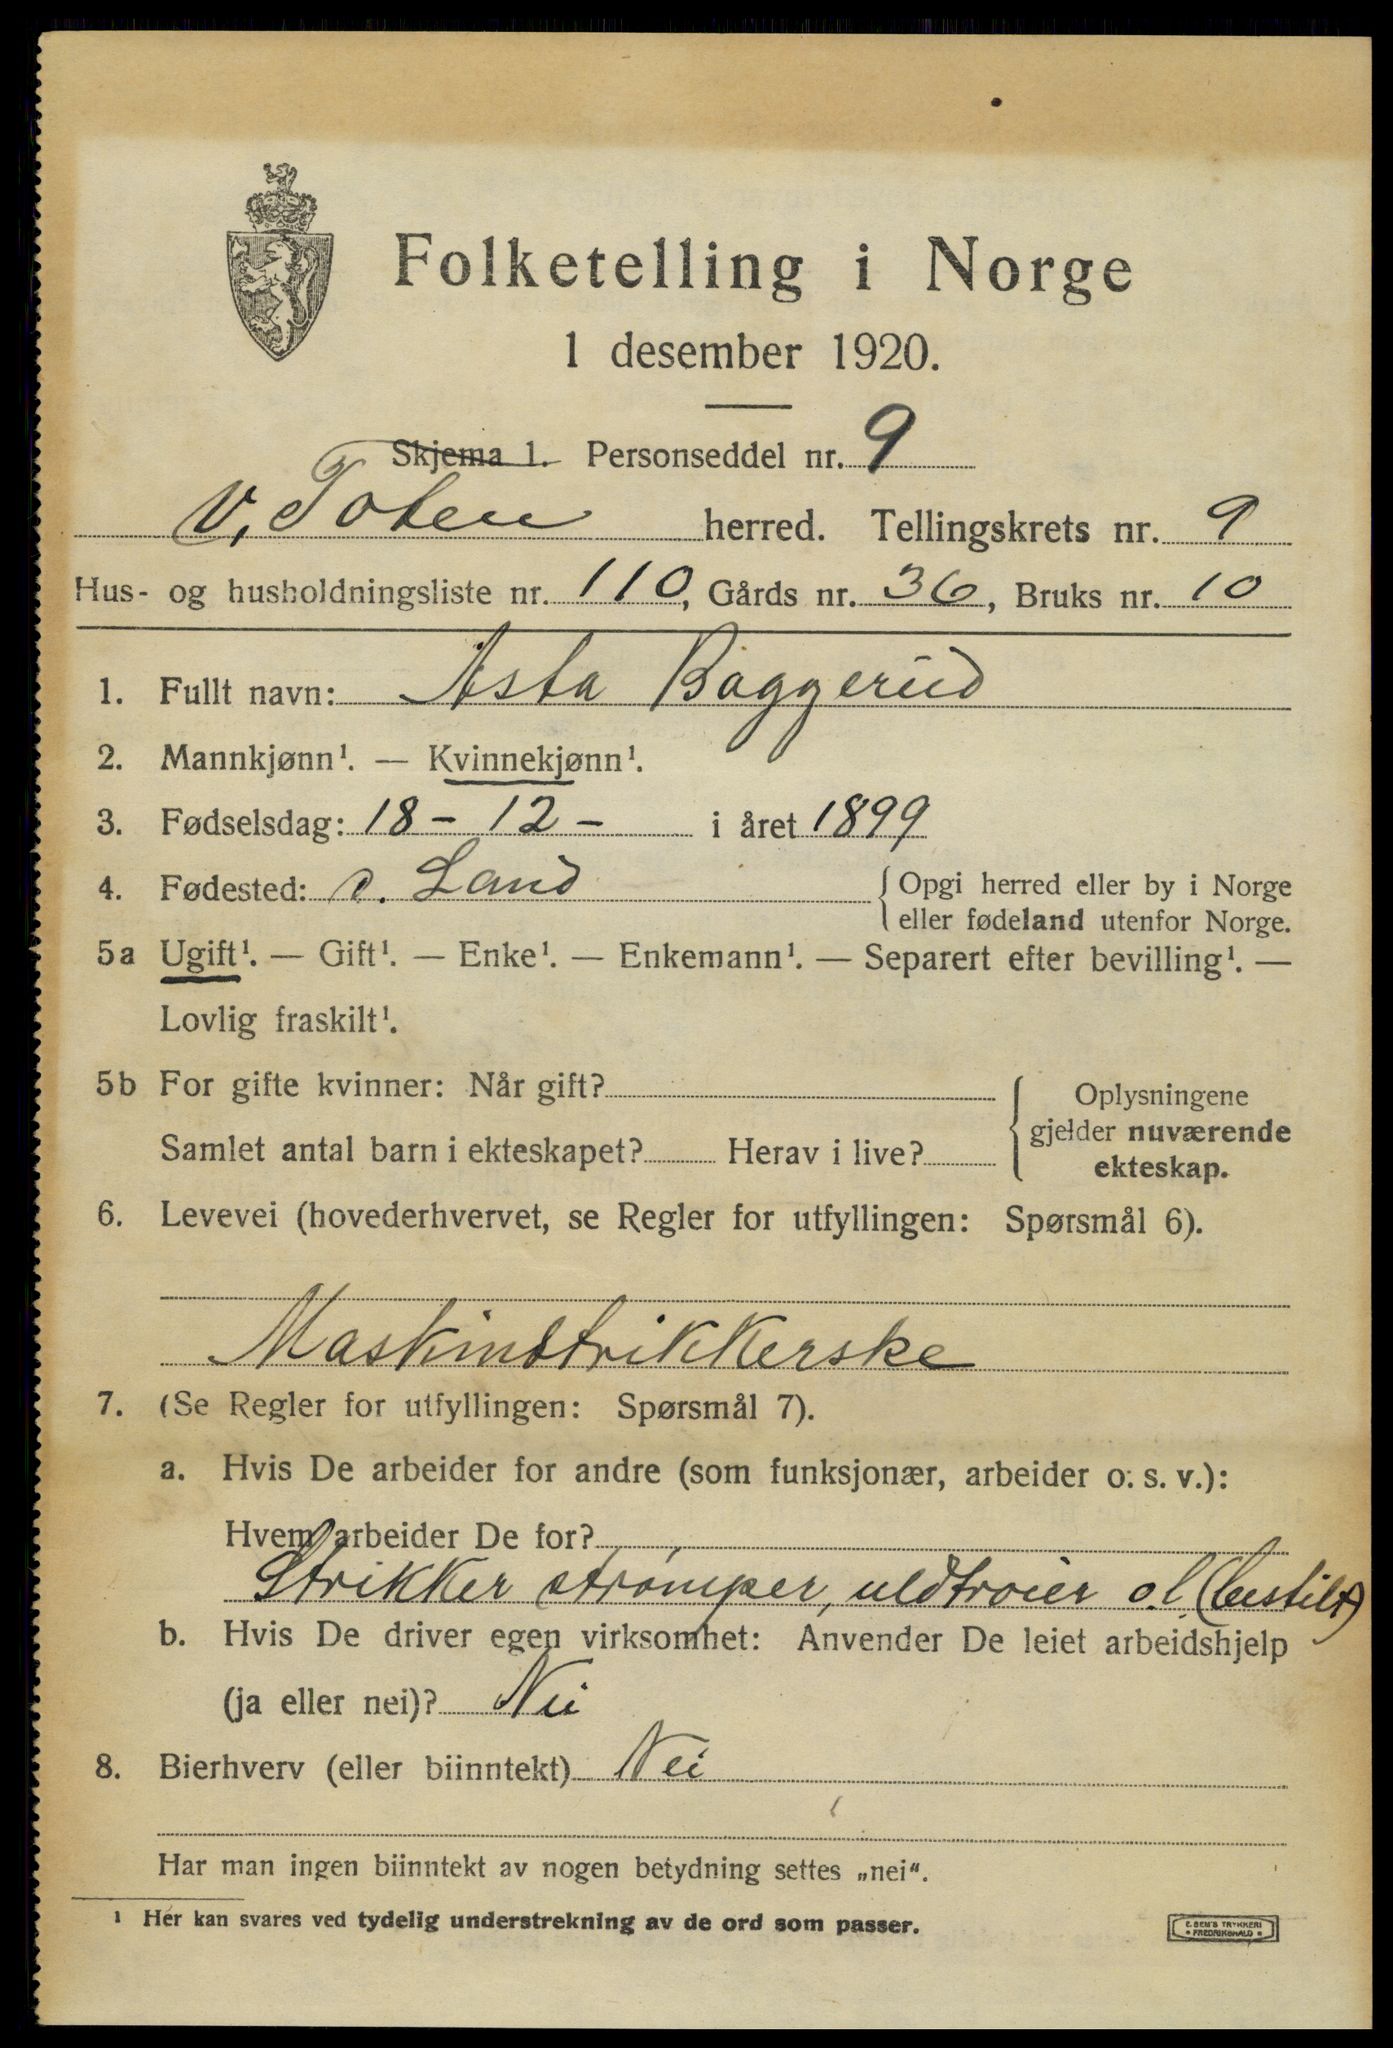 Folketelling i Norge
1 desember 1920.
Skjema 1. Personseddel nr. 9
V. Toten herred. Tellingskrets nr. 9
Hus- og husholdningsliste nr. 110, Gårds nr. 36, Bruks nr. 10
1. Fullt navn: Asta Baggerud
2. Mannkjønn¹. — Kvinnekjønn¹.
3. Fødselsdag: 18 - 12 - i året 1899
4. Fødested: Land { Opgi herred eller by i Norge
eller fødeland utenfor Norge.
5a Ugift¹. — Gift¹. — Enke¹. — Enkemann¹. — Separert efter bevilling¹. —
Lovlig fraskilt¹.
5b For gifte kvinner: Når gift?
Samlet antal barn i ekteskapet? Herav i live?
{ Oplysningene
gjelder nuværende
ekteskap.
6. Levevei (hovederhvervet, se Regler for utfyllingen: Spørsmål 6).
Maskinstrikkerske
7. (Se Regler for utfyllingen: Spørsmål 7).
a. Hvis De arbeider for andre (som funksjonær, arbeider o. s. v.):
Hvem arbeider De for?
Strikker strømper, uldtrøier o.l. (bestilt)
b. Hvis De driver egen virksomhet: Anvender De leiet arbeidshjelp
(ja eller nei)? Nei
8. Bierhverv (eller biinntekt) Nei
Har man ingen biinntekt av nogen betydning settes „nei“.
¹ Her kan svares ved tydelig understrekning av de ord som passer.
E. SEM'S TRYKKERI
* FREDRIKSHALD *